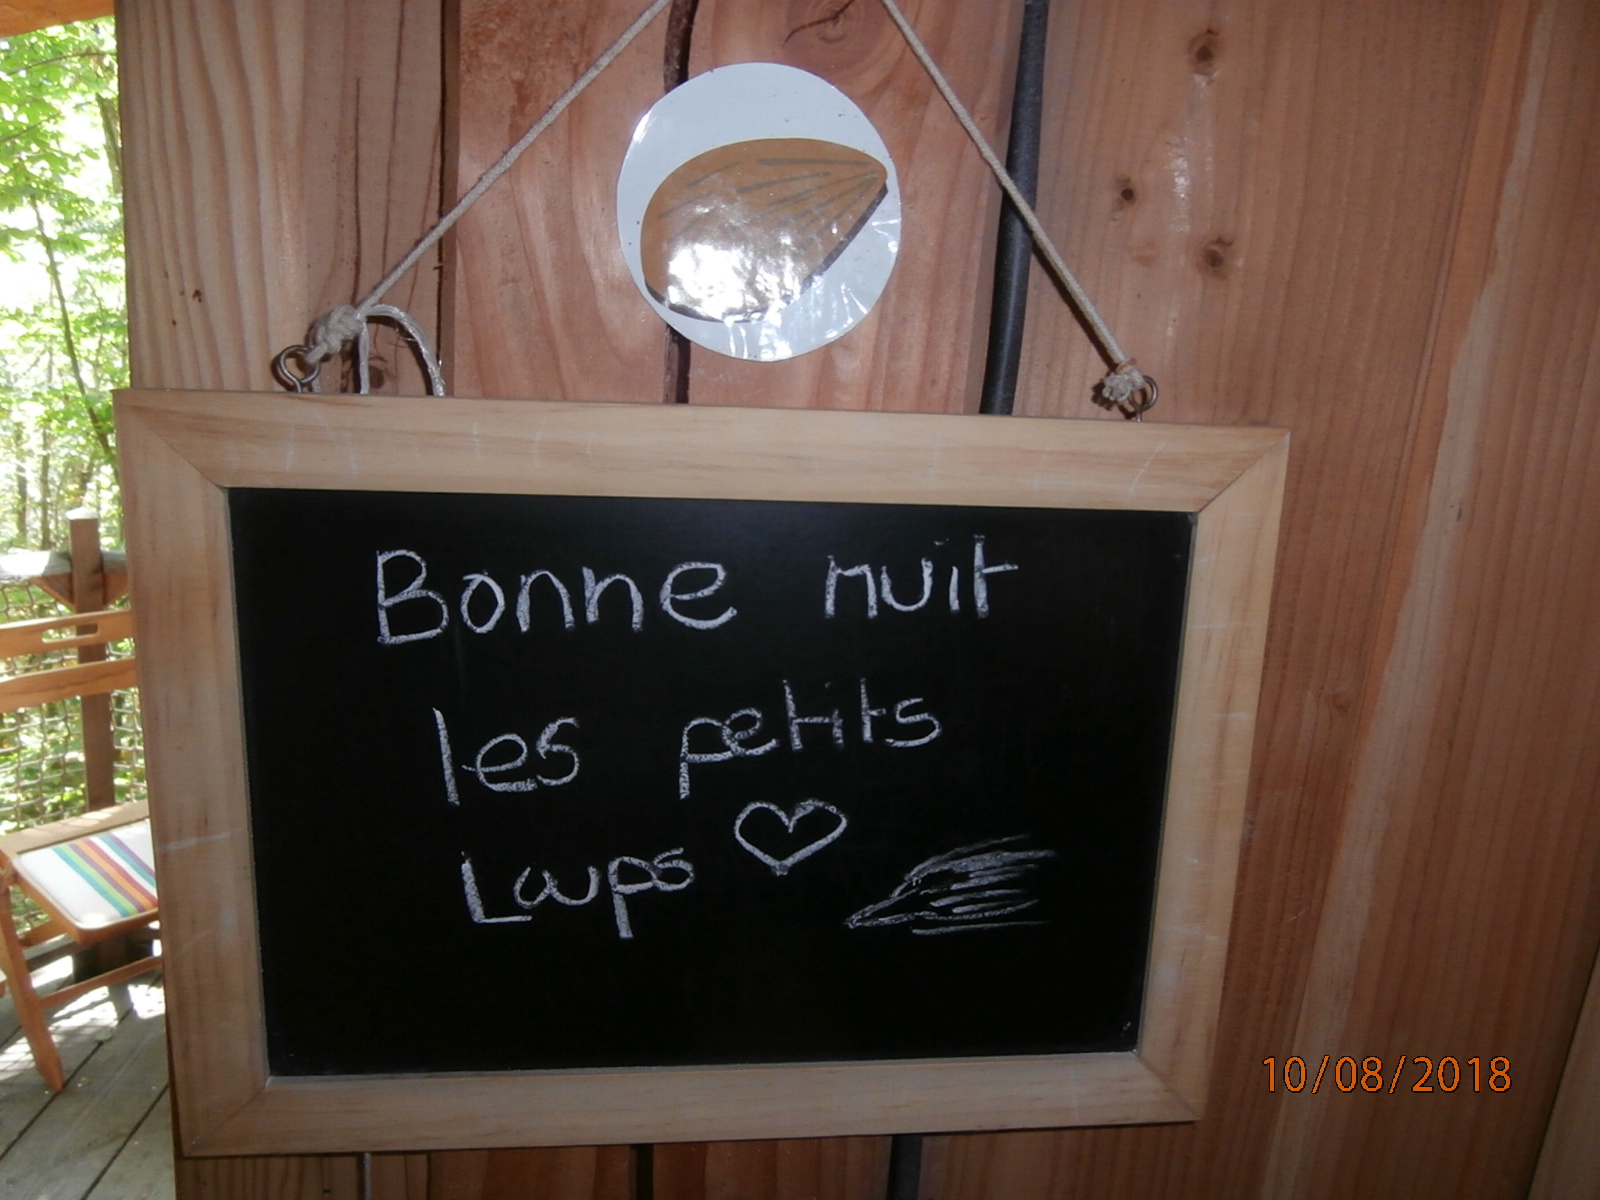 Bonne nuit
les petits
Loups
10/08/2018